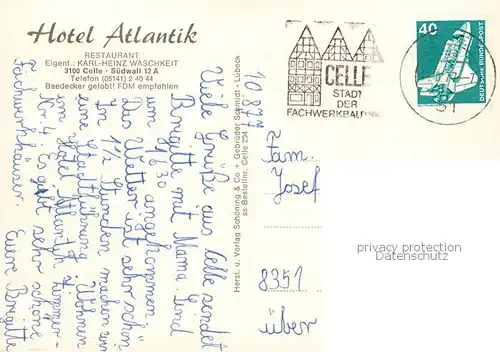 Hotel Atlantik
RESTAURANT
Eigent.: KARL-HEINZ WASCHKEIT
3100 Celle - Südwall 12 A
Telefon (05141) 2 40 44
Baedecker gelobt! FDM empfohlen
CELLE
STADT
DER
FACHWERKBAU
40
DEUTSCHE BUNDESPOST
31
Herst. u. Verlag Schöning & Co + Gebrüder Schmidt - Lübeck
ss Bestellnr. Celle 234
10.8.77
Viele Grüße aus Celle sendet
Brigitte mit Mama. Sind
um 16³⁰ angekommen.
Das Wetter ist sehr schön.
In 1½ Stunden machen wir
eine Stadtführung. Wohnen
im Hotel Atlantik Zimmer-
Nr 4. Es gibt sehr schöne
Fachwerkhäuser. Eure Brigitte
Fam.
Josef
8351
über
privacy protection
Datenschutz